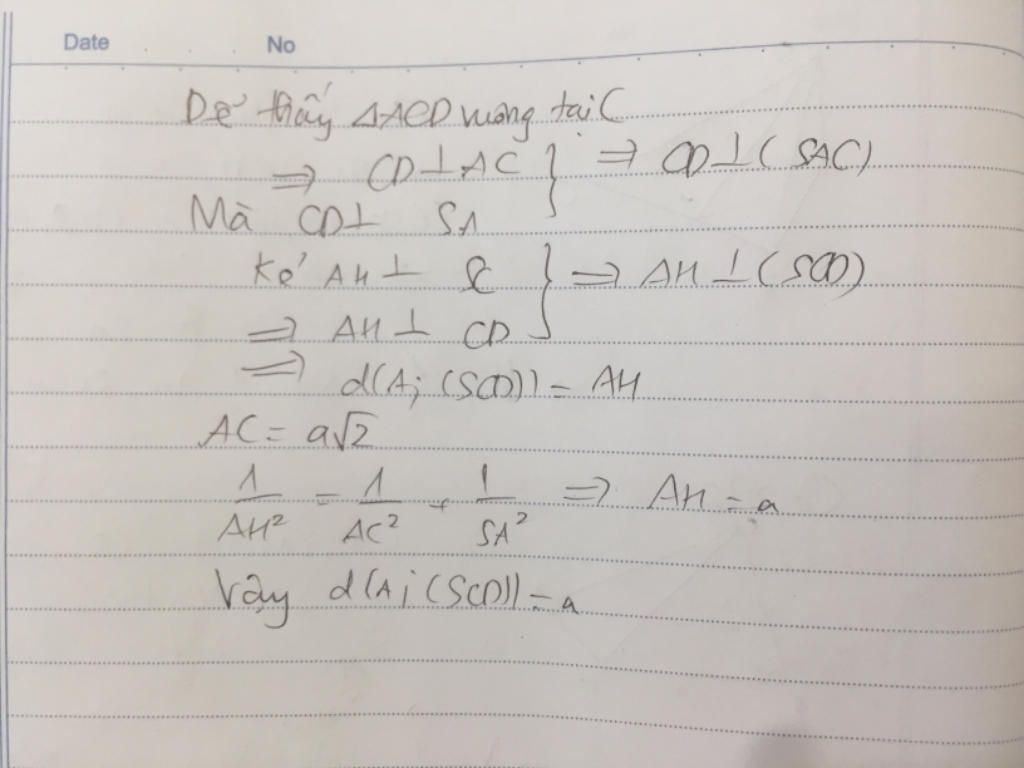 Date No
Dễ thấy ΔACD vuông tại C
⇒ CD⊥AC } ⇒ CD⊥(SAC)
Mà CD⊥ SA
Kẻ AH⊥ SC } ⇒ AH⊥(SCD)
⇒ AH⊥ CD
⇒ d(A; (SCD)) = AH
AC = a√2
1/AH² = 1/AC² + 1/SA² ⇒ AH = a
Vậy d(A; (SCD)) = a